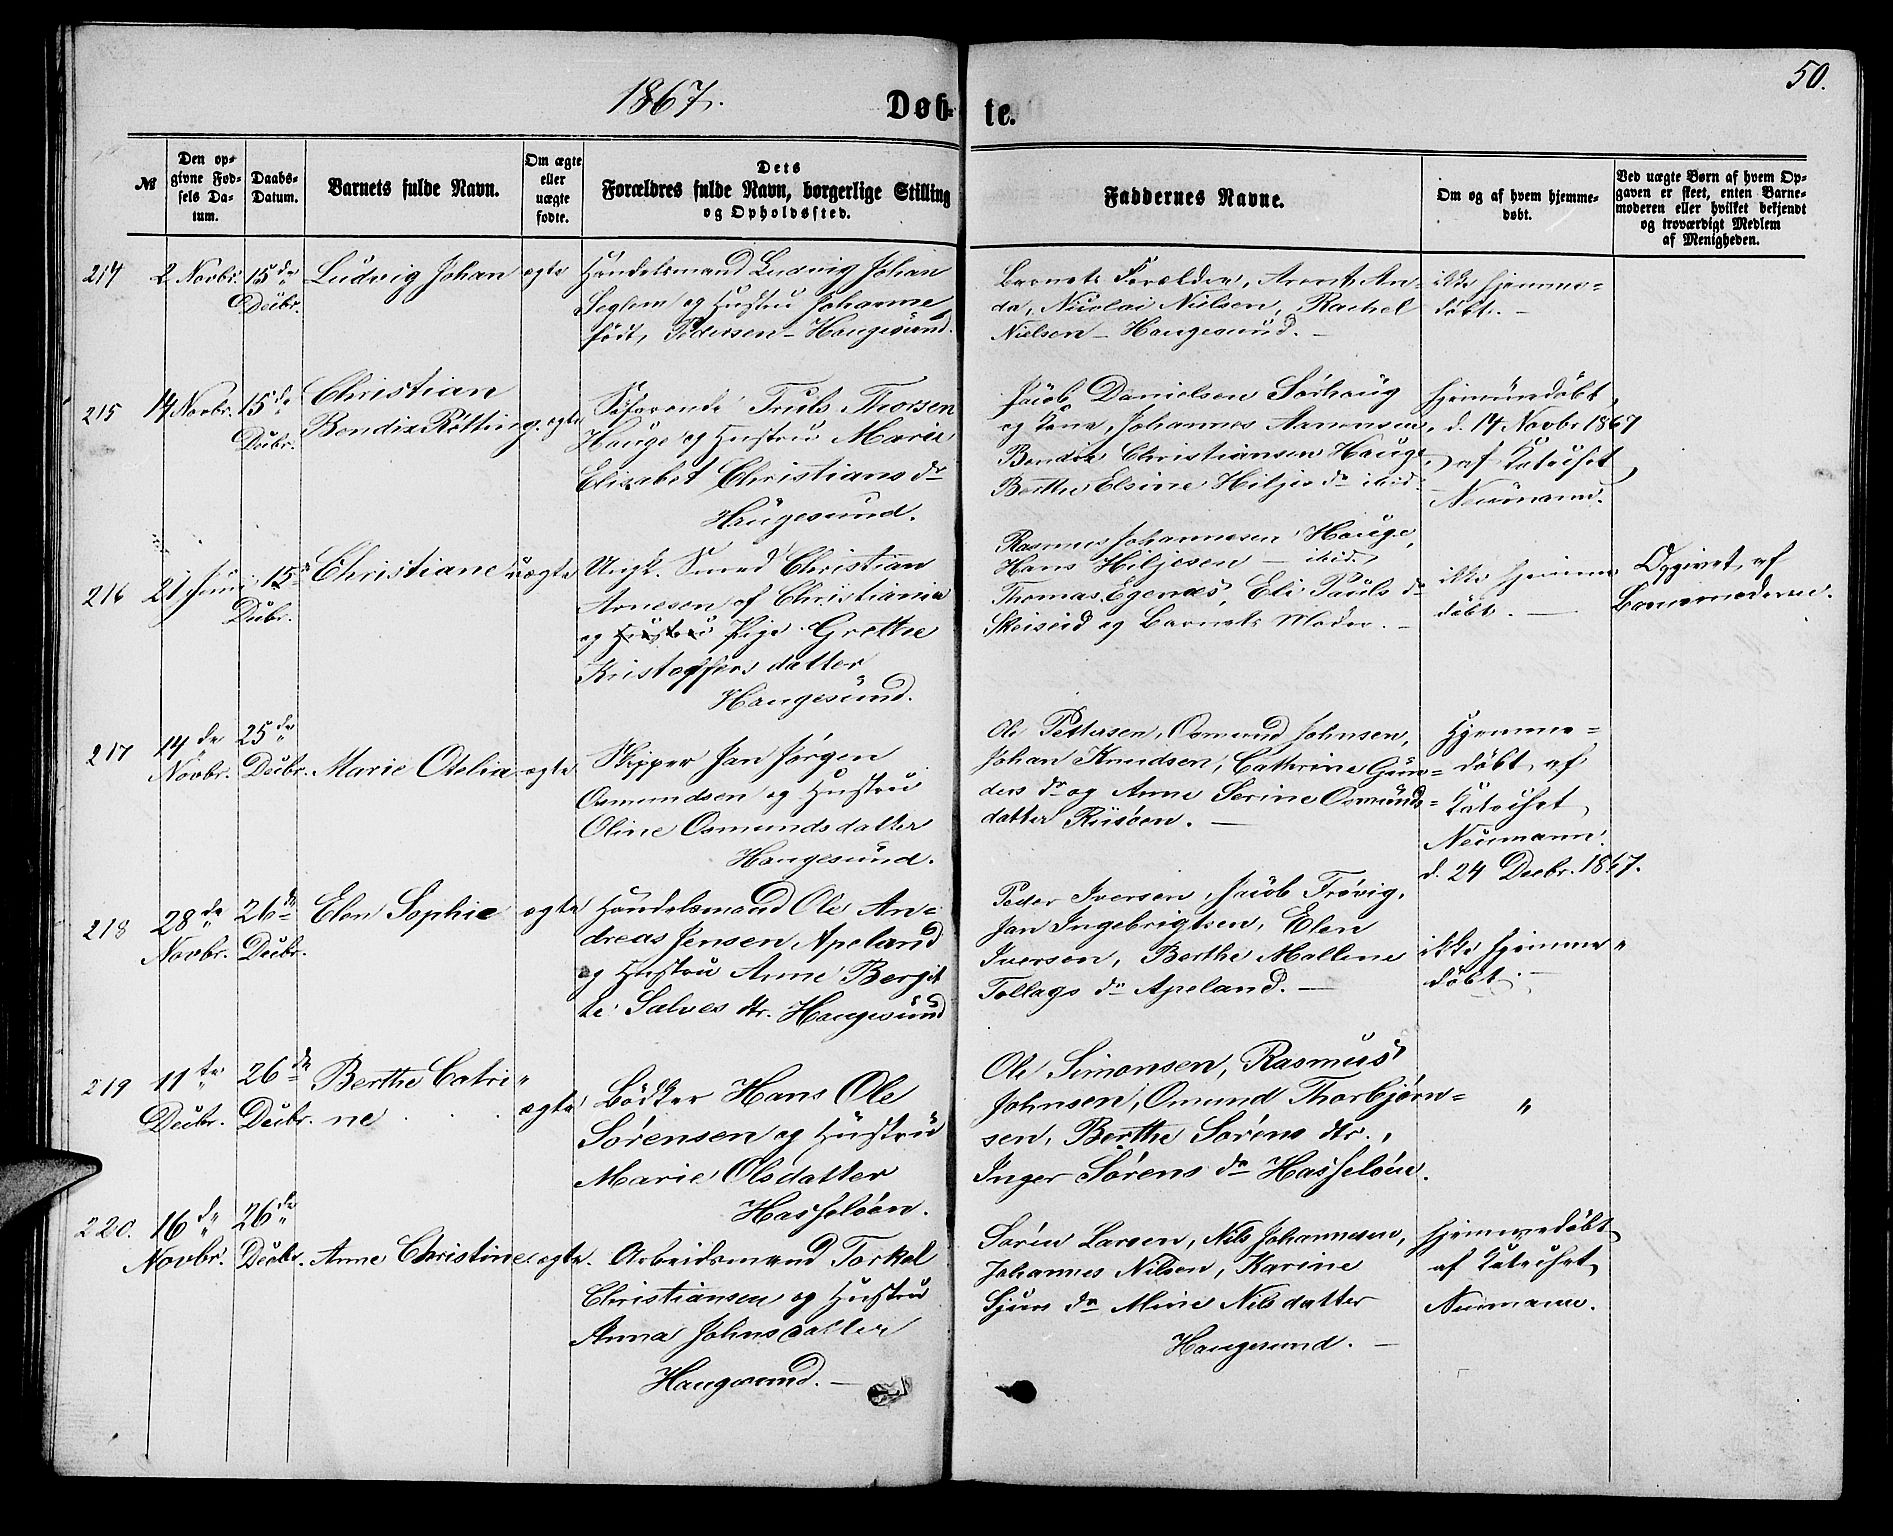 1867.
Døb-
te.
50.
№
Den op-
givne Fød-
sels Da-
tum.
Daabs-
Datum.
Barnets fulde Navn.
Om ægte
eller
uægte
fødte.
Dets
Forældres fulde Navn, borgerlige Stilling
og Opholdssted.
Faddernes Navne.
Om og af hvem hjemme-
døbt.
Ved uægte Børn af hvem Op-
gaven er skeet, enten Barne-
moderen eller hvilket bekjendt
og troværdigt Medlem
af Menigheden.
214
2 Novbr.
15de
Decbr.
Ludvig Johan
ægte
Handelsmand Ludvig Johan
Seglem og Hustru Johanne
født Pedersen - Haugesund.
Barnets Forældre, Arent An-
da, Nicolai Nielsen, Rachel
Nielsen - Haugesund. -
ikke hjemme-
døbt. -
215
14 Novbr.
15de
Decbr.
Christian
Bendix Røtting.
ægte
Søfarende Truls Thorsen
Hauge og Hustru Marie
Elisabet Christiansdr
Haugesund.
Jacob Danielsen Sørhaug
og Kone, Johannes Aanensen,
Bendix Christiansen Hauge,
Berthe Elsine Hiljesdr ibid.
hjemmedøbt
d. 14 Novbr 1867
af Katechet
Neumann.
216
21 Juni
15de
Decbr.
Christiane
uægte
Ungk. Smed Christian
Arnesen af Christiania
og Hustru Pige Grethe
Kristoffersdatter
Haugesund.
Rasmus Johannesen Hauge,
Hans Hiljesen - ibid.,
Thomas Egenæs, Eli Paulsdr
Skeiseid og Barnets Moder. -
ikke hjemme
døbt. -
Opgivet af
Barnemoderen.
217
14de
Novbr.
25de
Decbr.
Marie Otelia
ægte
Skipper Jan Jørgen
Osmundsen og Hustru
Oline Osmundsdatter
Haugesund.
Ole Pettersen, Osmund Johnsen,
Johan Knudsen, Cathrine Gun-
dersdr og Anne Serine Osmunds-
datter Risøen. -
Hjemme-
døbt af
Katechet
Neumann.
d. 24 Decbr. 1867.
218
28de
Novbr.
26de
Decbr.
Elen Sophie
ægte
Handelsmand Ole An-
dreas Jensen Apeland
og Hustru Anne Bergit
te Salvesdtr. Haugesund
Peder Iversen, Jacob Frøvig,
Jan Ingebrigtsen, Elen
Iversen, Berthe Malline
Tollagsdr Apeland. -
ikke hjemme"
døbt. -
219
11te
Decbr.
26de
Decbr.
Berthe Catri"
ne
ægte
Bødker Hans Ole
Sørensen og Hustru
Marie Olsdatter
Hasseløen.
Ole Simonsen, Rasmus
Johnsen, Omund Thorbjørn-
sen, Berthe Sørensdtr.,
Inger Sørensdr Hasseløen.
"
220.
16de
Novbr.
26de
Decbr.
Anne Christine
ægte.
Arbeidsmand Torkel
Christiansen og Hustru
Anna Johnsdatter
Haugesund. -
Søren Larsen, Nils Johannesen,
Johannes Nilsen, Karine
Sjursdr Mine Nilsdatter
Haugesund. -
hjemmedøbt
af Katechet
Neumann.